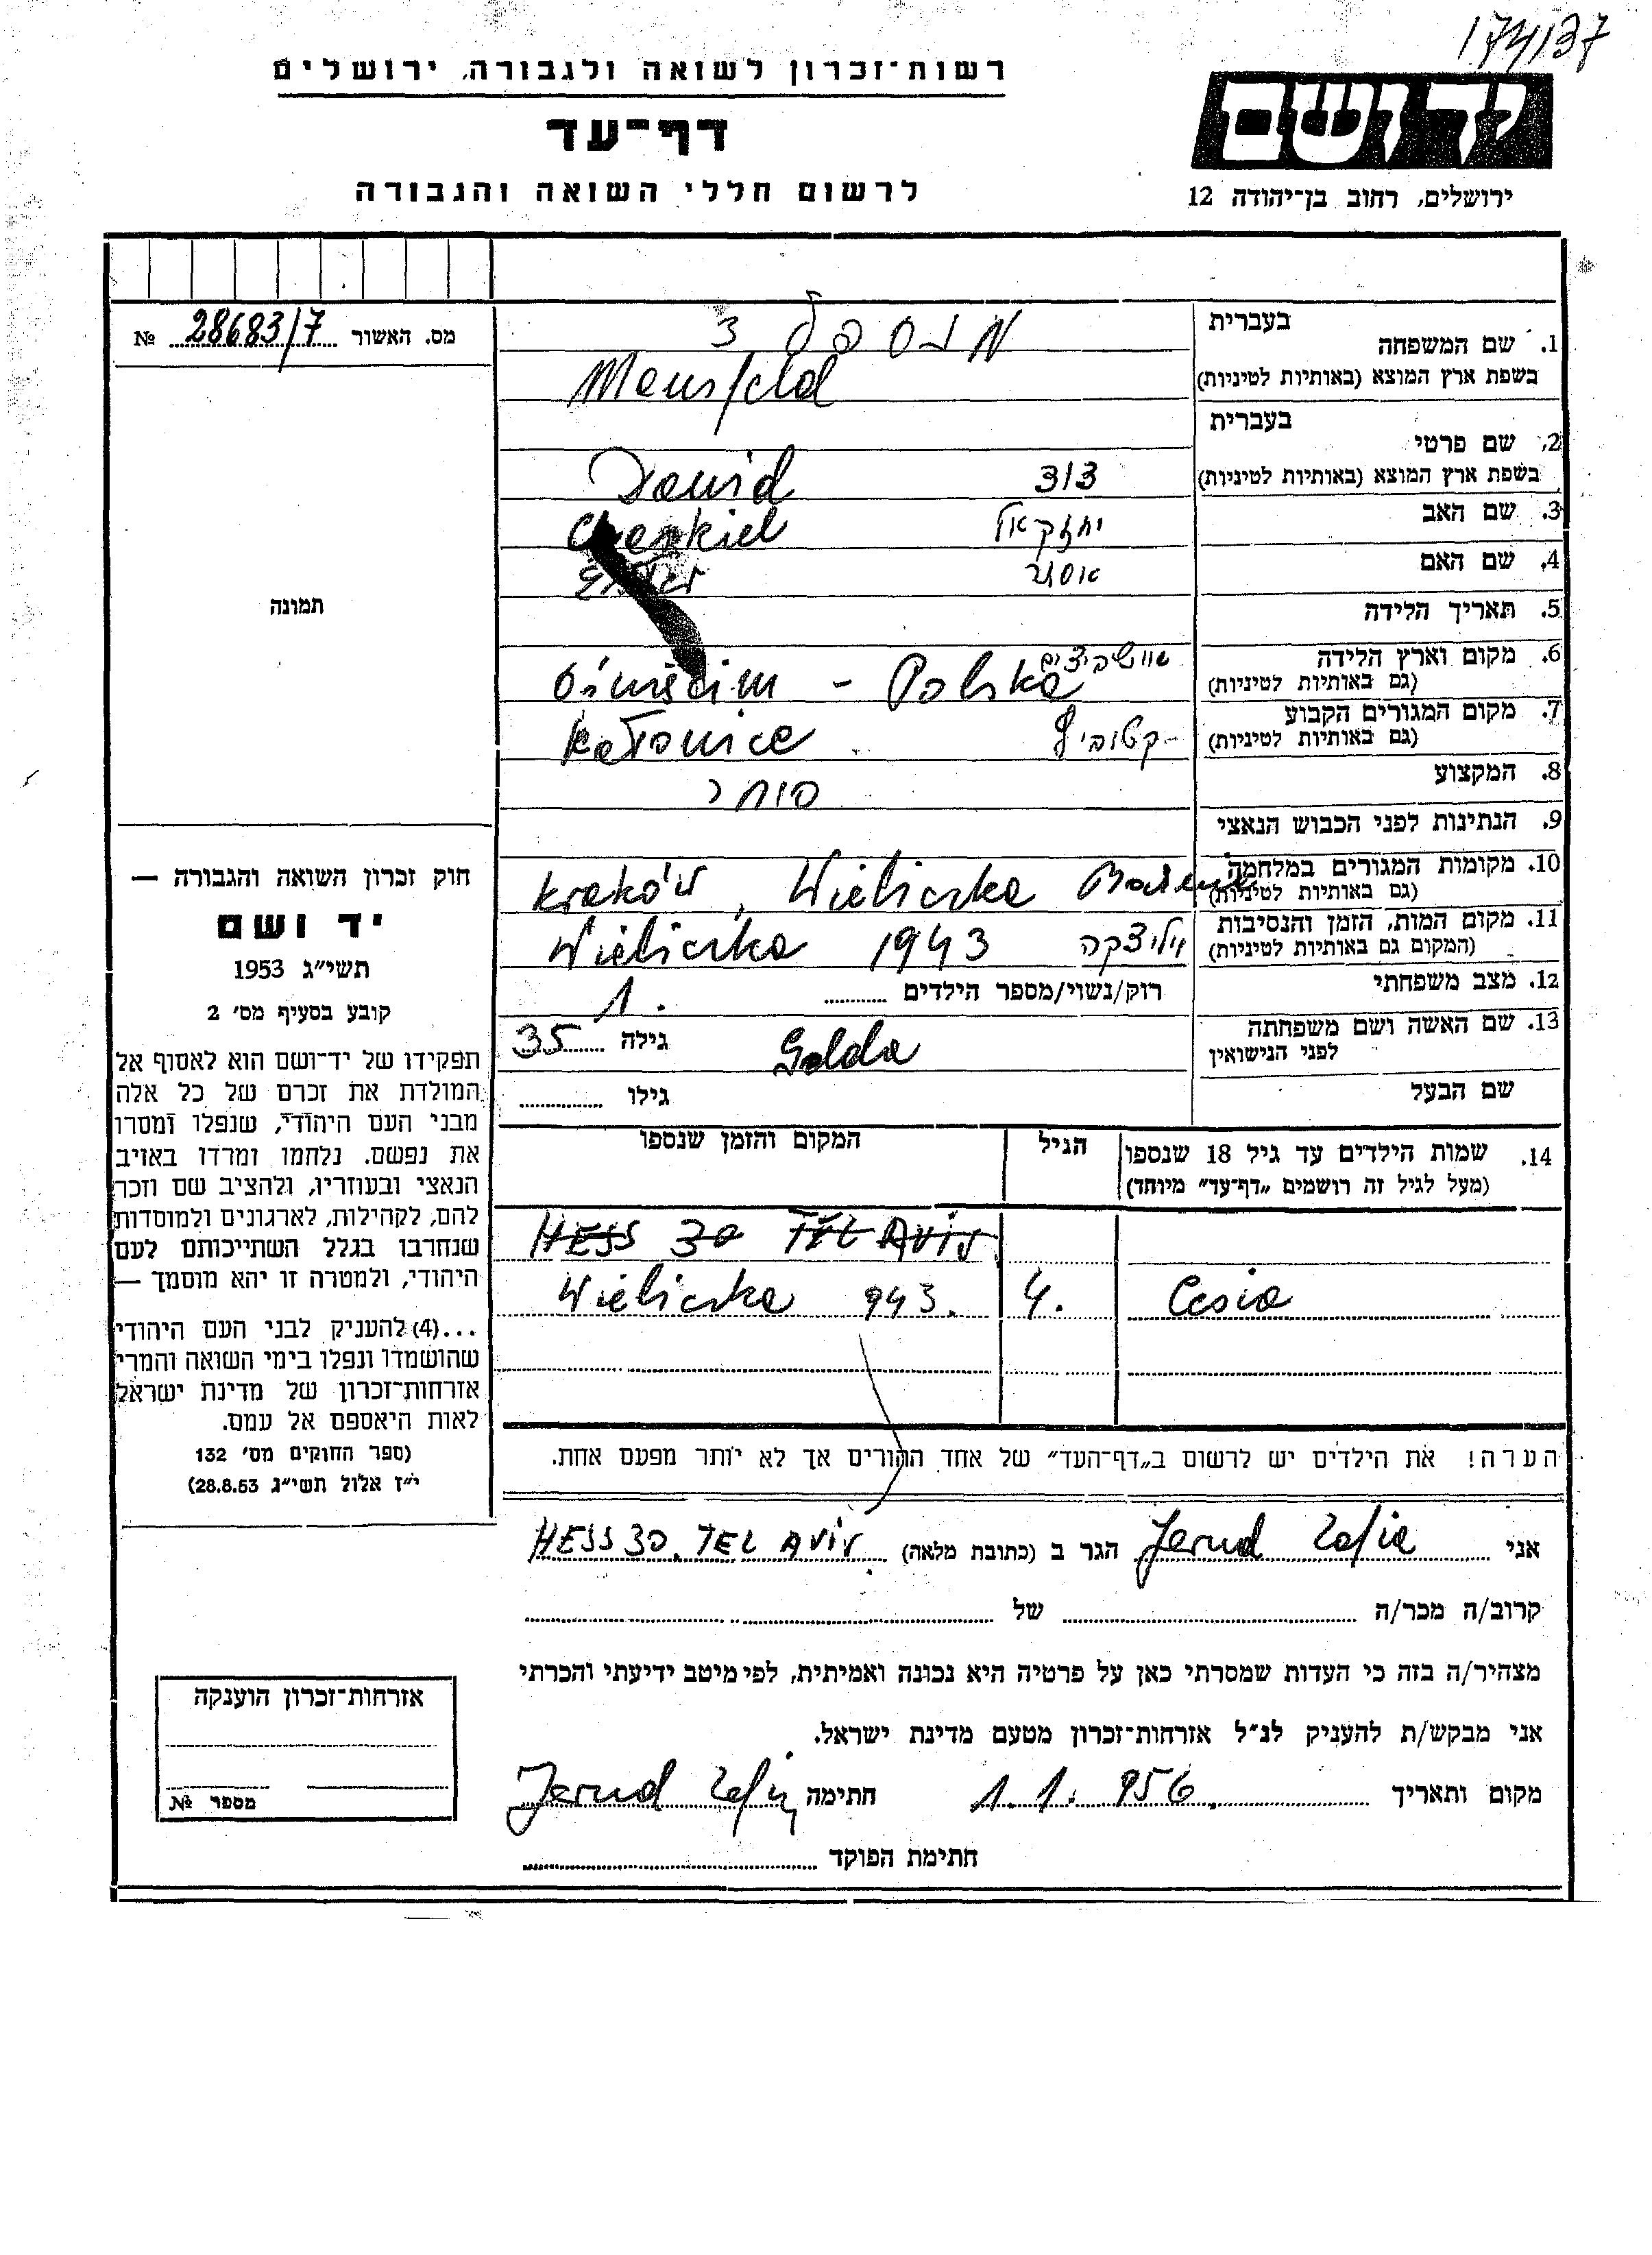 174137
רשות־זכרון לשואה ולגבורה, ירושלים
דף־עד
לרשום חללי השואה והגבורה
יד ושם
ירושלים, רחוב בן־יהודה 12
מס. האשור 28683/7 №
תמונה
חוק זכרון השואה והגבורה —
יד ושם
תשי״ג 1953
קובע בסעיף מס׳ 2
תפקידו של יד־ושם הוא לאסוף אל
המולדת את זכרם של כל אלה
מבני העם היהודי, שנפלו ומסרו
את נפשם. נלחמו ומרדו באויב
הנאצי ובעוזריו, ולהציב שם וזכר
להם, לקהילות, לארגונים ולמוסדות
שנחרבו בגלל השתייכותם לעם
היהודי, ולמטרה זו יהא מוסמך —
...(4) להעניק לבני העם היהודי
שהושמדו ונפלו בימי השואה והמרי
אזרחות־זכרון של מדינת ישראל
לאות היאספם אל עמם.
(ספר החוקים מס׳ 132
י״ז אלול תשי״ג 28.8.53)
1. שם המשפחה בעברית מנספלד
בשפת ארץ המוצא (באותיות לטיניות) Mansfeld
2. שם פרטי בעברית
בשפת ארץ המוצא (באותיות לטיניות) דוד Dawid
3. שם האב יחזקאל
4. שם האם אסתר
5. תאריך הלידה
6. מקום וארץ הלידה
(גם באותיות לטיניות) Oświęcim - Polska
7. מקום המגורים הקבוע
(גם באותיות לטיניות) קטוביץ Katowice
8. המקצוע סוחר
9. הנתינות לפני הכבוש הנאצי
10. מקומות המגורים במלחמה
(גם באותיות לטיניות) Kraków, Wieliczka
11. מקום המות, הזמן והנסיבות
(המקום גם באותיות לטיניות) וליצקה Wieliczka 1943
12. מצב משפחתי רוק/נשוי/מספר הילדים 1.
13. שם האשה ושם משפחתה
לפני הנישואין Golda גילה 35
שם הבעל גילו
14. שמות הילדים עד גיל 18 שנספו הגיל המקום והזמן שנספו
(מעל לגיל זה רושמים „דף־עד״ מיוחד)
HESS 30 TEL AVIV
Cesia 4. Wieliczka 943.
הערה! את הילדים יש לרשום ב„דף־העד״ של אחד ההורים אך לא יותר מפעם אחת.
אני Jerud Zofia הגר ב (כתובת מלאה) HESS 30. TEL AVIV
קרוב/ה מכר/ה של
מצהיר/ה בזה כי העדות שמסרתי כאן על פרטיה היא נכונה ואמיתית, לפי מיטב ידיעתי והכרתי
אני מבקש/ת להעניק לנ״ל אזרחות־זכרון מטעם מדינת ישראל.
מקום ותאריך 1.1.956. חתימה Jerud
חתימת הפוקד
אזרחות־זכרון הוענקה
מספר №